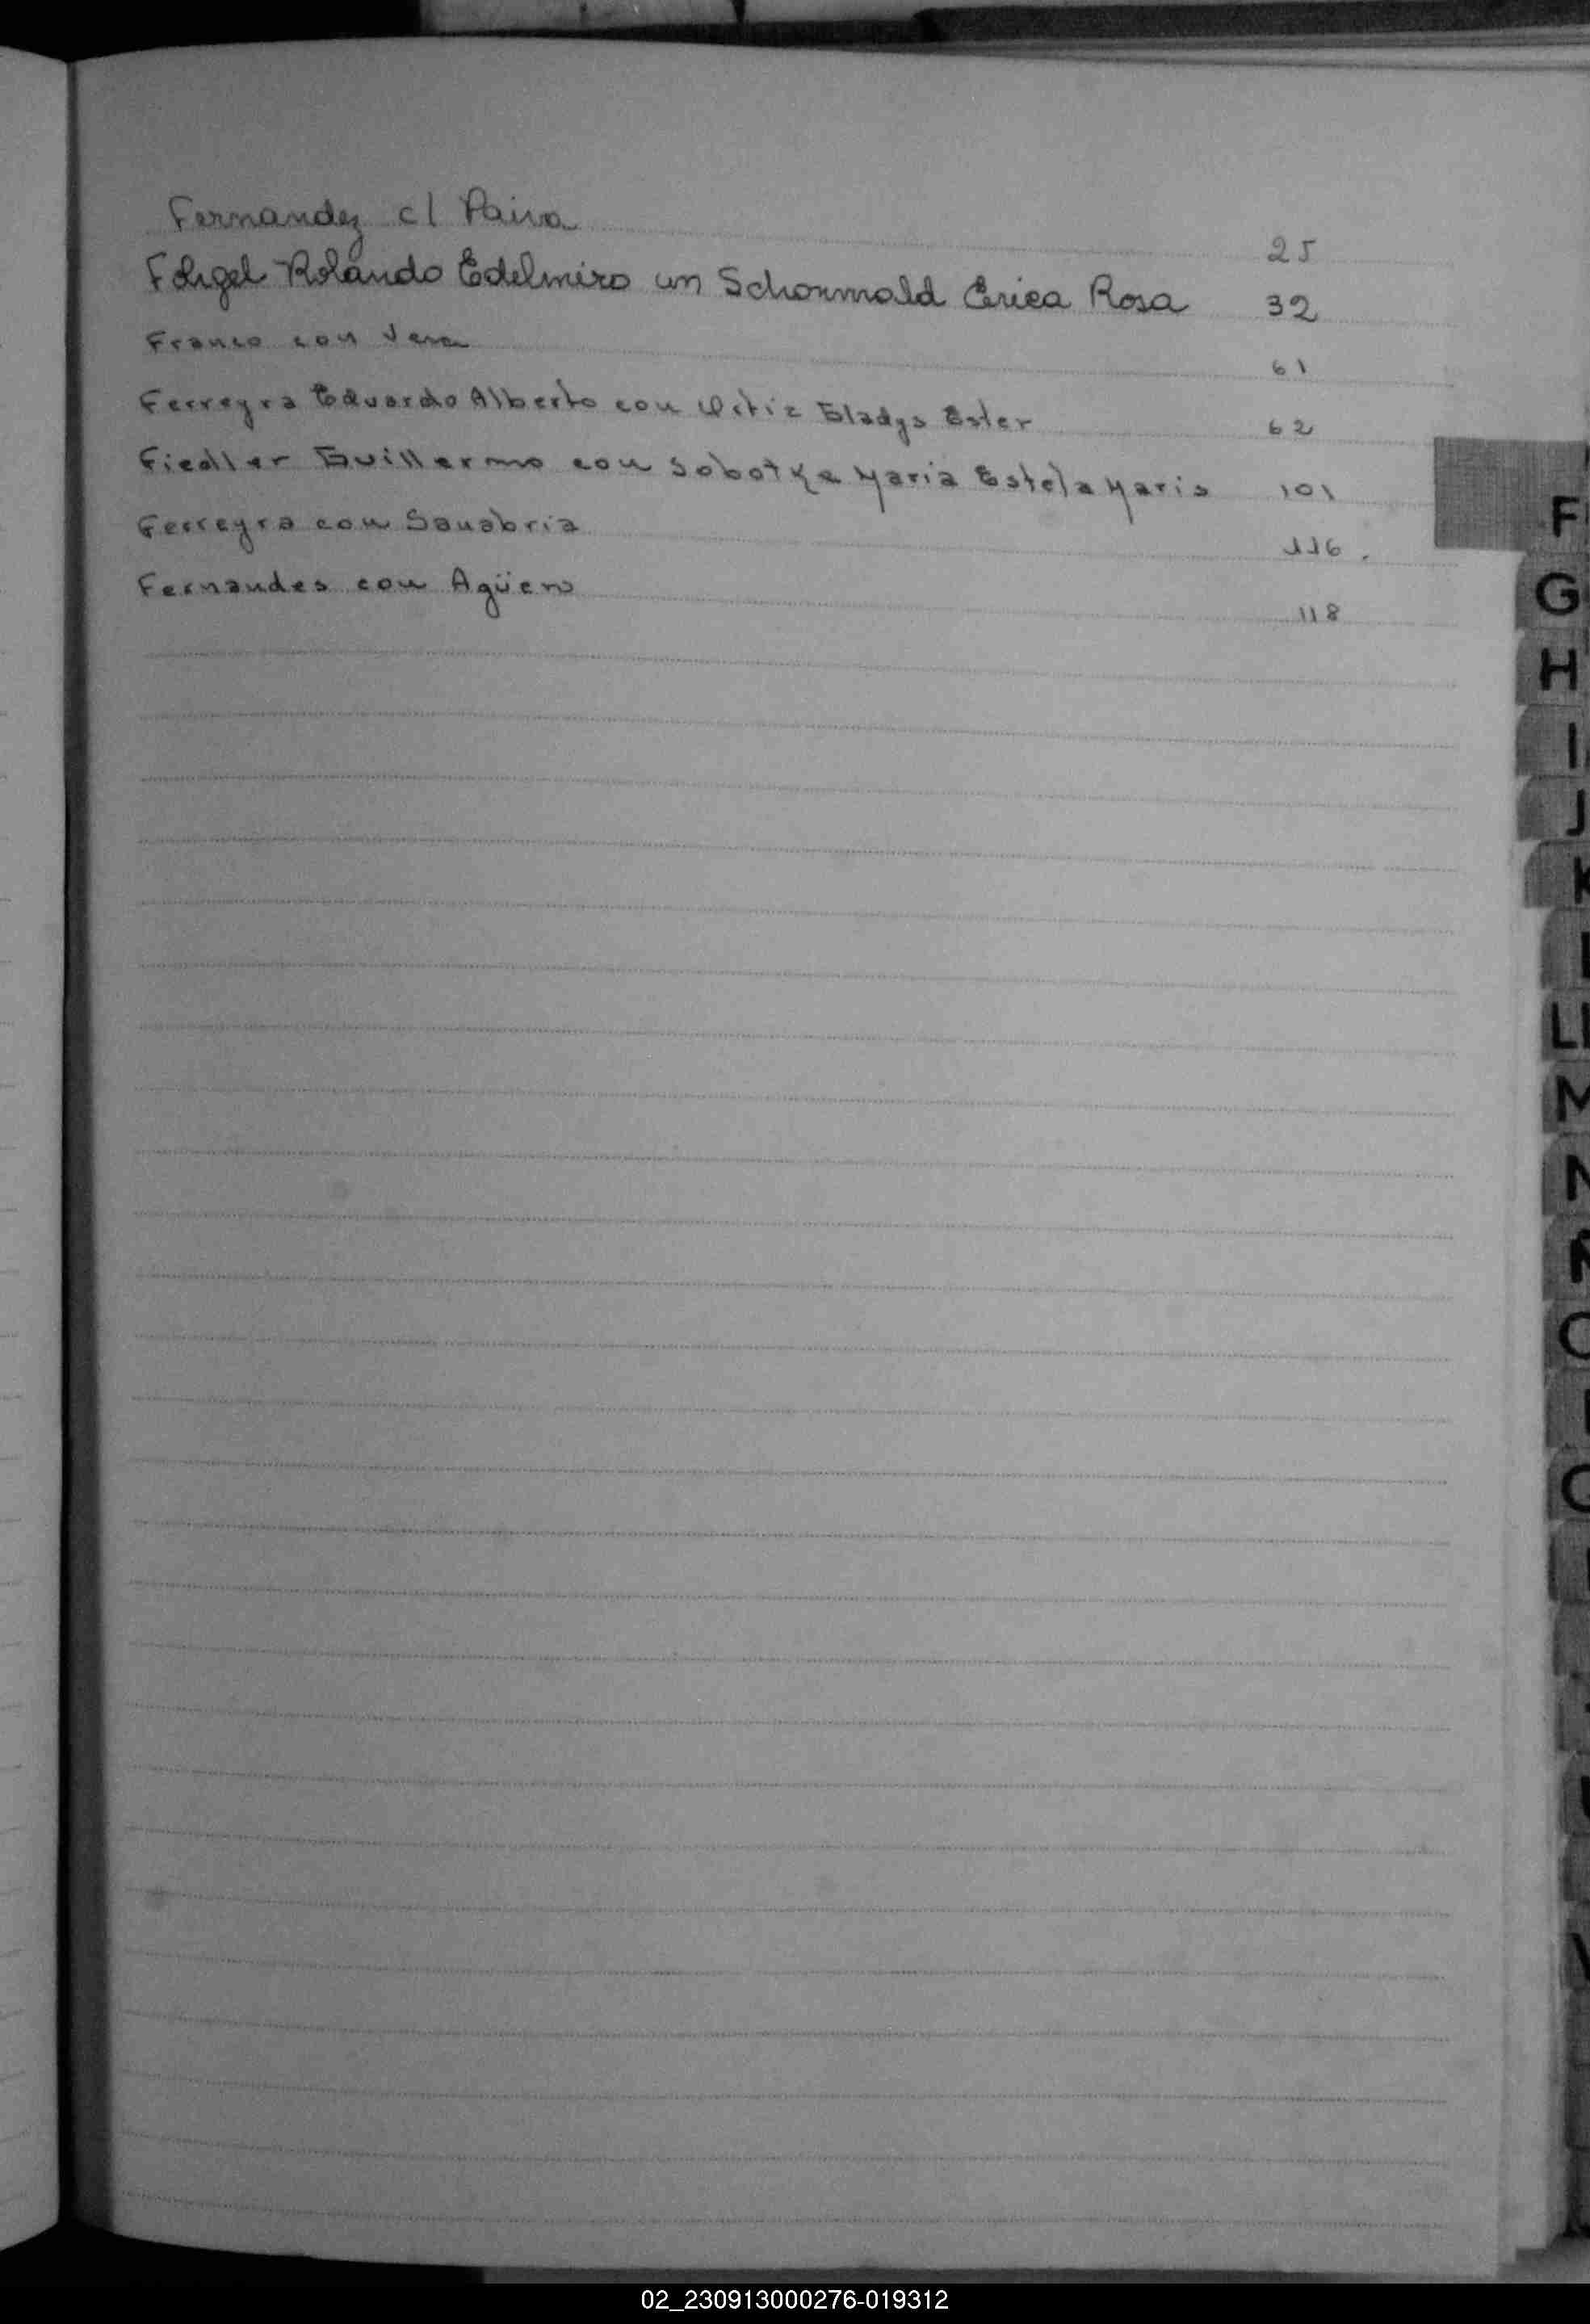 Fernandez c/ Paiva 25
Fohgel Rolando Edelmiro con Schonmald Erica Rosa 32
Franco con Vera 61
Ferreyra Eduardo Alberto con Ortiz Gladys Ester 62
Fiedler Guillermo con Sobotke Maria Estela Maris 101
Ferreyra con Sanabria 116.
Fernandes con Agüero 118
F
G
H
I
J
K
L
Ll
M
N
Ñ
O
Q
V
02_230913000276-019312